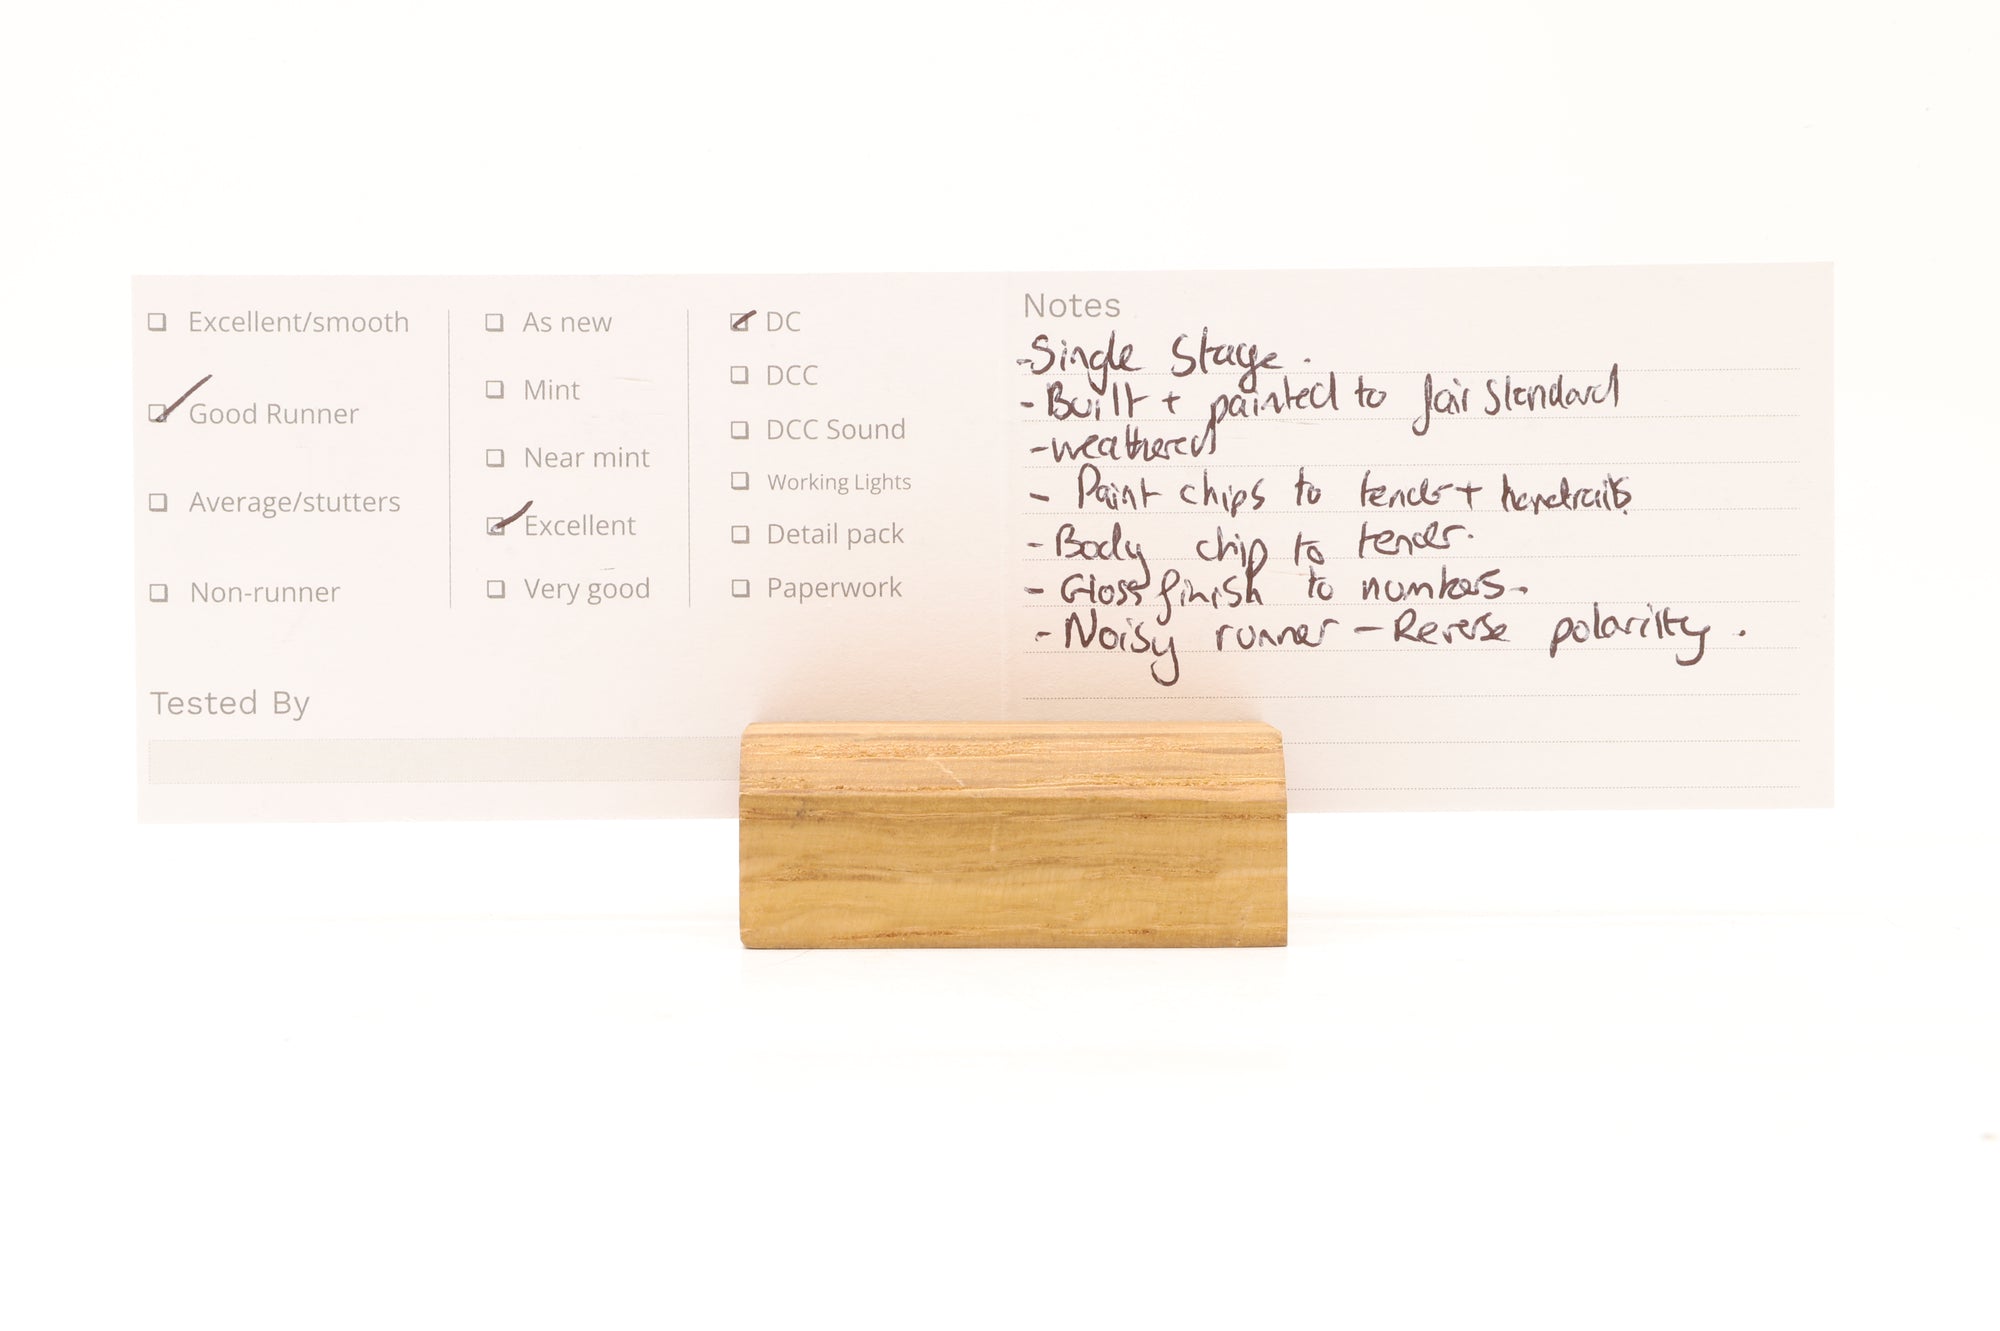 Excellent/smooth
Good Runner
Average/stutters
Non-runner
As new
Mint
Near mint
Excellent
Very good
DC
DCC
DCC Sound
Working Lights
Detail pack
Paperwork
Tested By
Notes
-Single Stage.
-Built + painted to fair Standard
-weathered
- Paint chips to tender + handrails
-Body chip to tender.
- Gloss finish to numbers-
-Noisy runner - Reverse polarity.